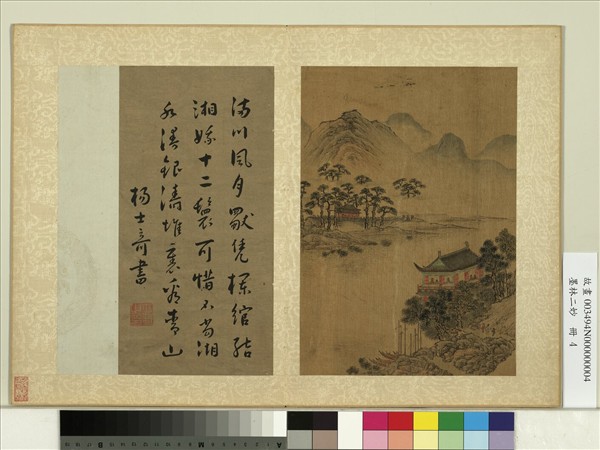 滿川風月獨凭欄綰結
湘娥十二鬟可惜不當湖
水銀濤堆裏看青山
楊士奇書
故畫 003494N000000004
墨林二妙 冊 4